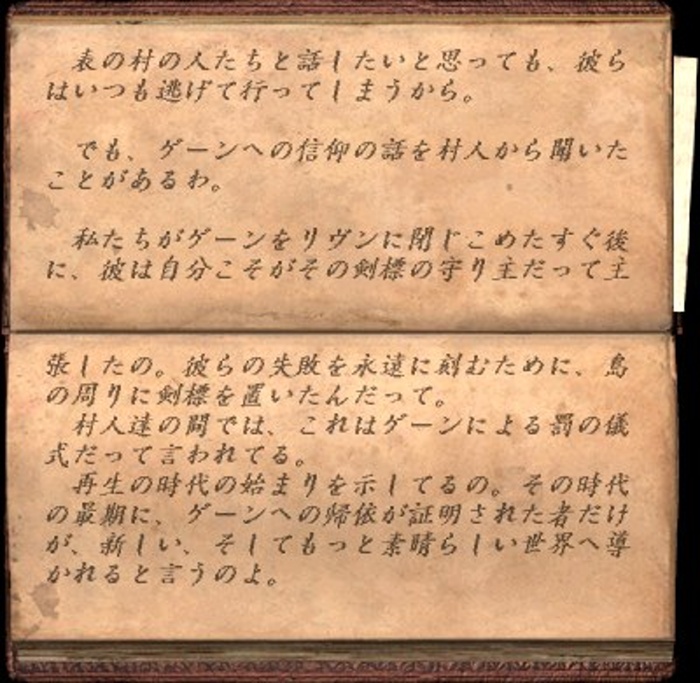 表の村の人たちと話したいと思っても、彼ら
はいつも逃げて行ってしまうから。
でも、ゲーンへの信仰の話を村人から聞いた
ことがあるわ。
私たちがゲーンをリヴンに閉じこめたすぐ後
に、彼は自分こそがその剣標の守り主だって主
張したの。彼らの失敗を永遠に刻むために、島
の周りに剣標を置いたんだって。
村人達の間では、これはゲーンによる罰の儀
式だって言われてる。
再生の時代の始まりを示してるの。その時代
の最期に、ゲーンへの帰依が証明された者だけ
が、新しい、そしてもっと素晴らしい世界へ導
かれると言うのよ。